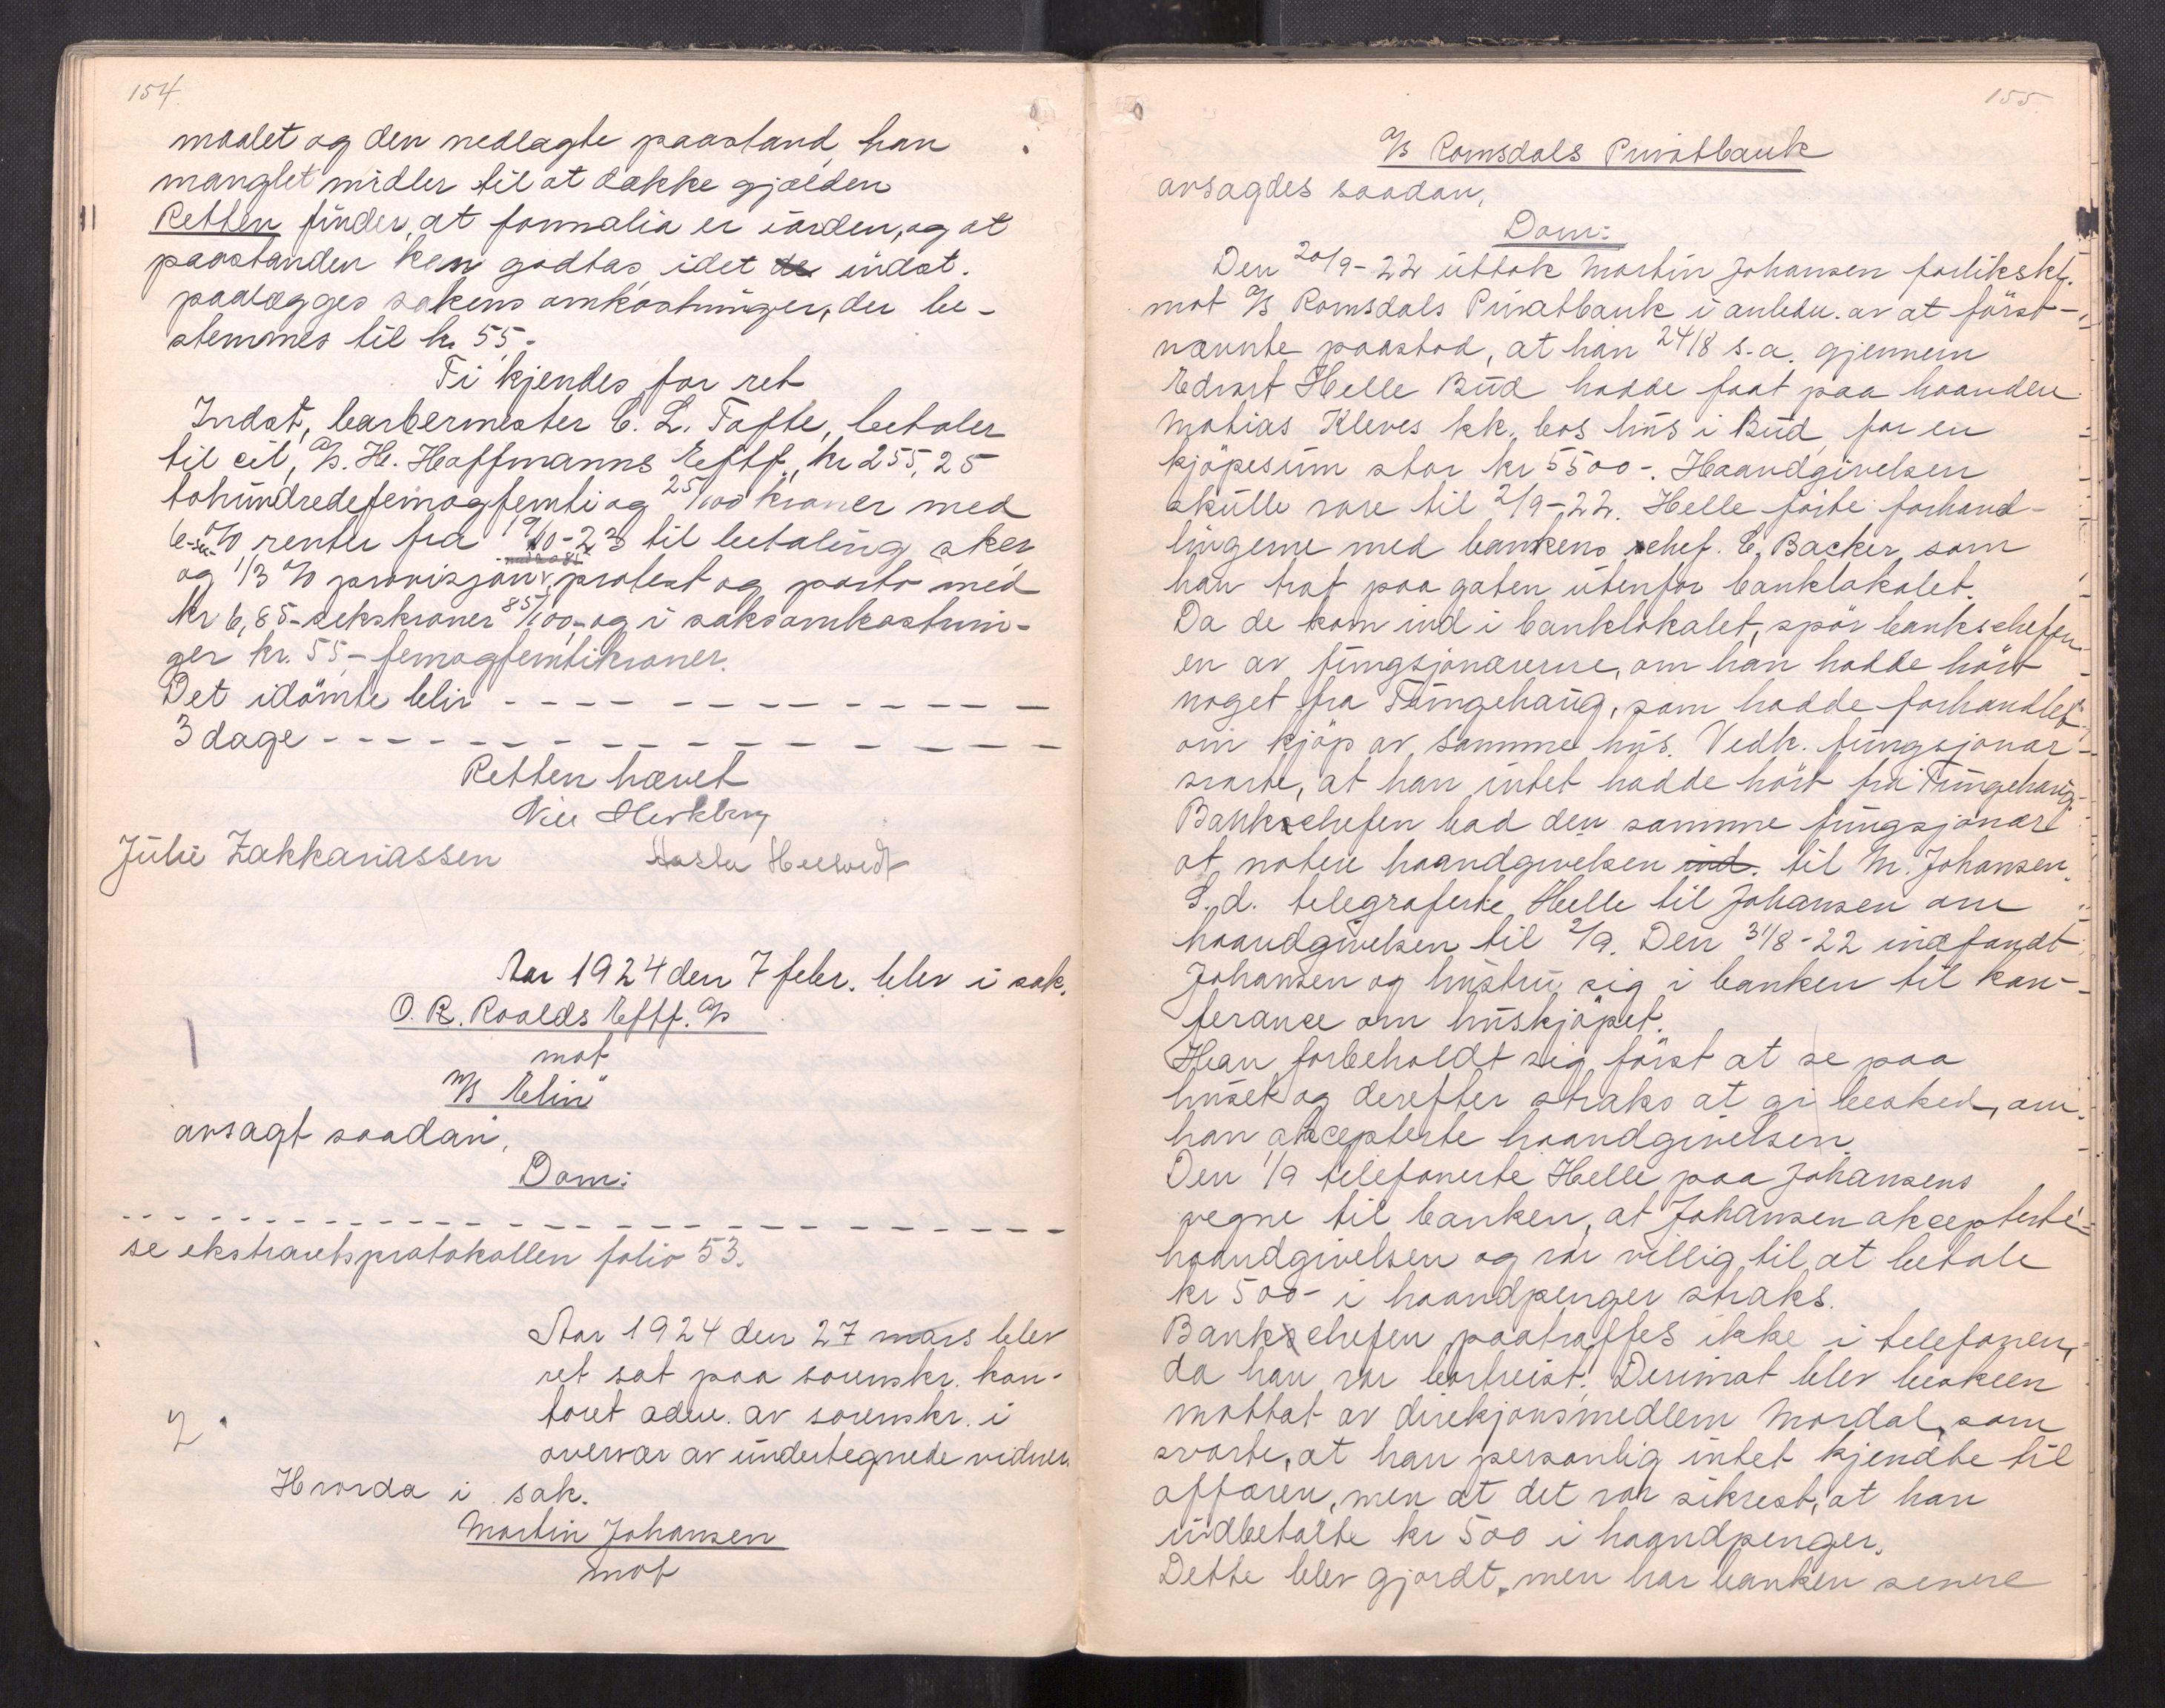 154.
maalet og den nedlagte paastand, han
manglet midler til at dække gjælden
Retten finder, at formalia er iorden, og at
paastanden kan godtas, idet de indst.
paalægges sakens omkostninger, der be-
stemmes til kr 55.-
Ti kjendes for ret
Indst, barbermester C. L. Tofte, betaler
til cit, A/S. H. Hoffmanns Eftf., kr 255,25
tohundredefemogfemti og 25/100 kroner med
6-seks-% renter fra 19/10-23 til betaling sker
og 1/3 % provisjon, protest og porto med
kr 6,85- sekskroner 85/100,- og i saksomkostnin-
ger kr. 55,- femogfemtikroner.
Det idömte blir - - - - - - - - - - - -
3 dage - - - - - - - - - - - - - - -
Retten hævet
Julie Zakkariassen
Aar 1924 den 7 febr. blev i sak.
O. R. Roalds Eftf. A/S
mot
M/S "Elin"
avsagt saadan,
Dom:
- - - - - - - - - - - - - - - - - - - -
se ekstraretsprotokollen folio 53.
Aar 1924 den 27 mars blev
ret sat paa sorenskr. kon-
toret adm. av sorenskr. i
overvær av undertegnede vidner
2.
Hvorda i sak.
Martin Johansen
mot
155.
A/S Romsdals Privatbank
avsagdes saadan,
Dom:
Den 20/9-22 uttok Martin Johansen forlikskl.
mot A/S Romsdals Privatbank i anledn. av at først-
nævnte paastod, at han 24/8 s.a. gjennem
Edvart Helle Bud hadde faat paa haanden
Mobias Kleves kk. bos hus i Bud for en
kjöpesum stor kr 5500-. Haandgivelsen
skulle vare til 2/9-22. Helle förte forhand-
lingerne med bankens chef. C. Backer, som
han traf paa gaten utenfor banklokalet.
Da de kom ind i banklokalet, spör bankchefen
en av fungsjonærerne, om han hadde hört
noget fra Tungehaug, som hadde forhandlet
om kjöp av samme hus. Vedk. fungsjonær
svarte, at han intet hadde hört fra Tungehaug.
Bankchefen bad den samme fungsjonær
at notere haandgivelsen ind. til M. Johansen.
S.d. telegraferte Helle til Johansen om
haandgivelsen til 2/9. Den 31/8-22 indfandt
Johansen og hustru sig i banken til kon-
ferance om huskjöpet.
Han forbeholdt sig först at se paa
huset og derefter straks at gi besked, om
han akcepterte haandgivelsen.
Den 1/9 telefonerte Helle paa Johansens
vegne til banken, at Johansen akcepterte
haandgivelsen og var villig til at betale
kr 500- i haandpenger straks.
Bankchefen paatraffes ikke i telefonen,
da han var bortreist. Derimot blev beskeen
mottat av direkjonsmedlem Mordal, som
svarte, at han personlig intet kjendte til
affæren, men at det var sikrest, at han
indbetalte kr 500 i haandpenger.
Dette blev gjordt, men har banken senere